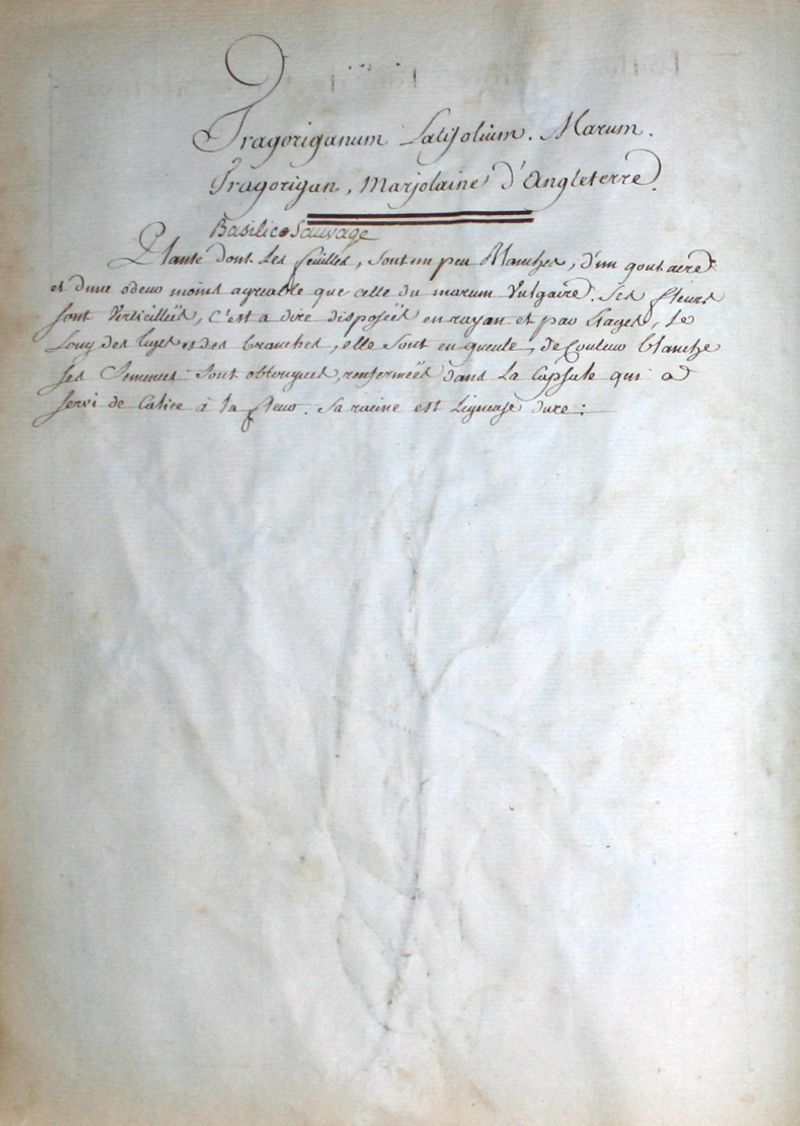 Tragoriganum Latifolium. Marum.
Tragorigan, Marjolaine d'Angleterre.
Basilic Sauvage
Plante dont Les feuilles, sont un peu Blanches, d'un gout acre
et d'une odeur moins agreable que celle du marum Vulgaire. Ses fleurs
sont Verticilleës, C'est a dire disposeës en rayon et par Etages, Le
Long des tiges et des branches, elle sont en gueule, de Couleur blanche
ses Semences sont oblongues, renfermeës dans La Capsule qui a
servi de Calice à la fleur. Sa racine est Ligneuse dure :